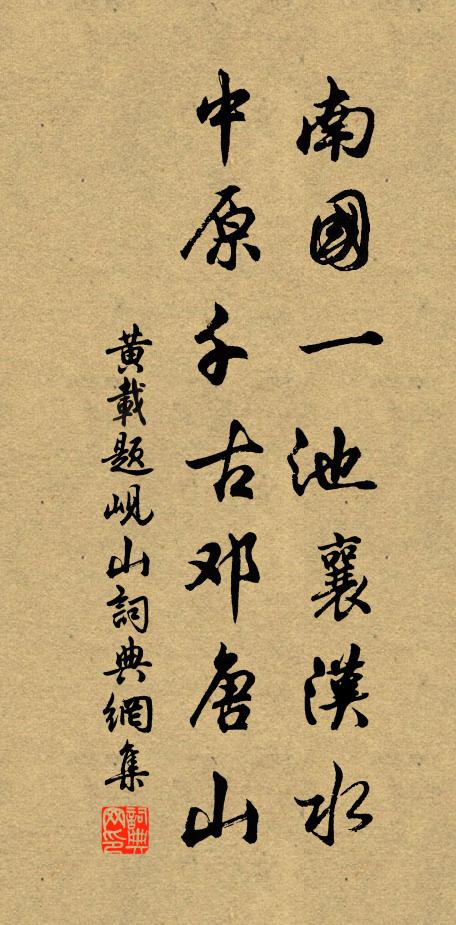 南國一池襄漢水
中原千古邓唐山
黄載题峴山詞典網集
詞典网印